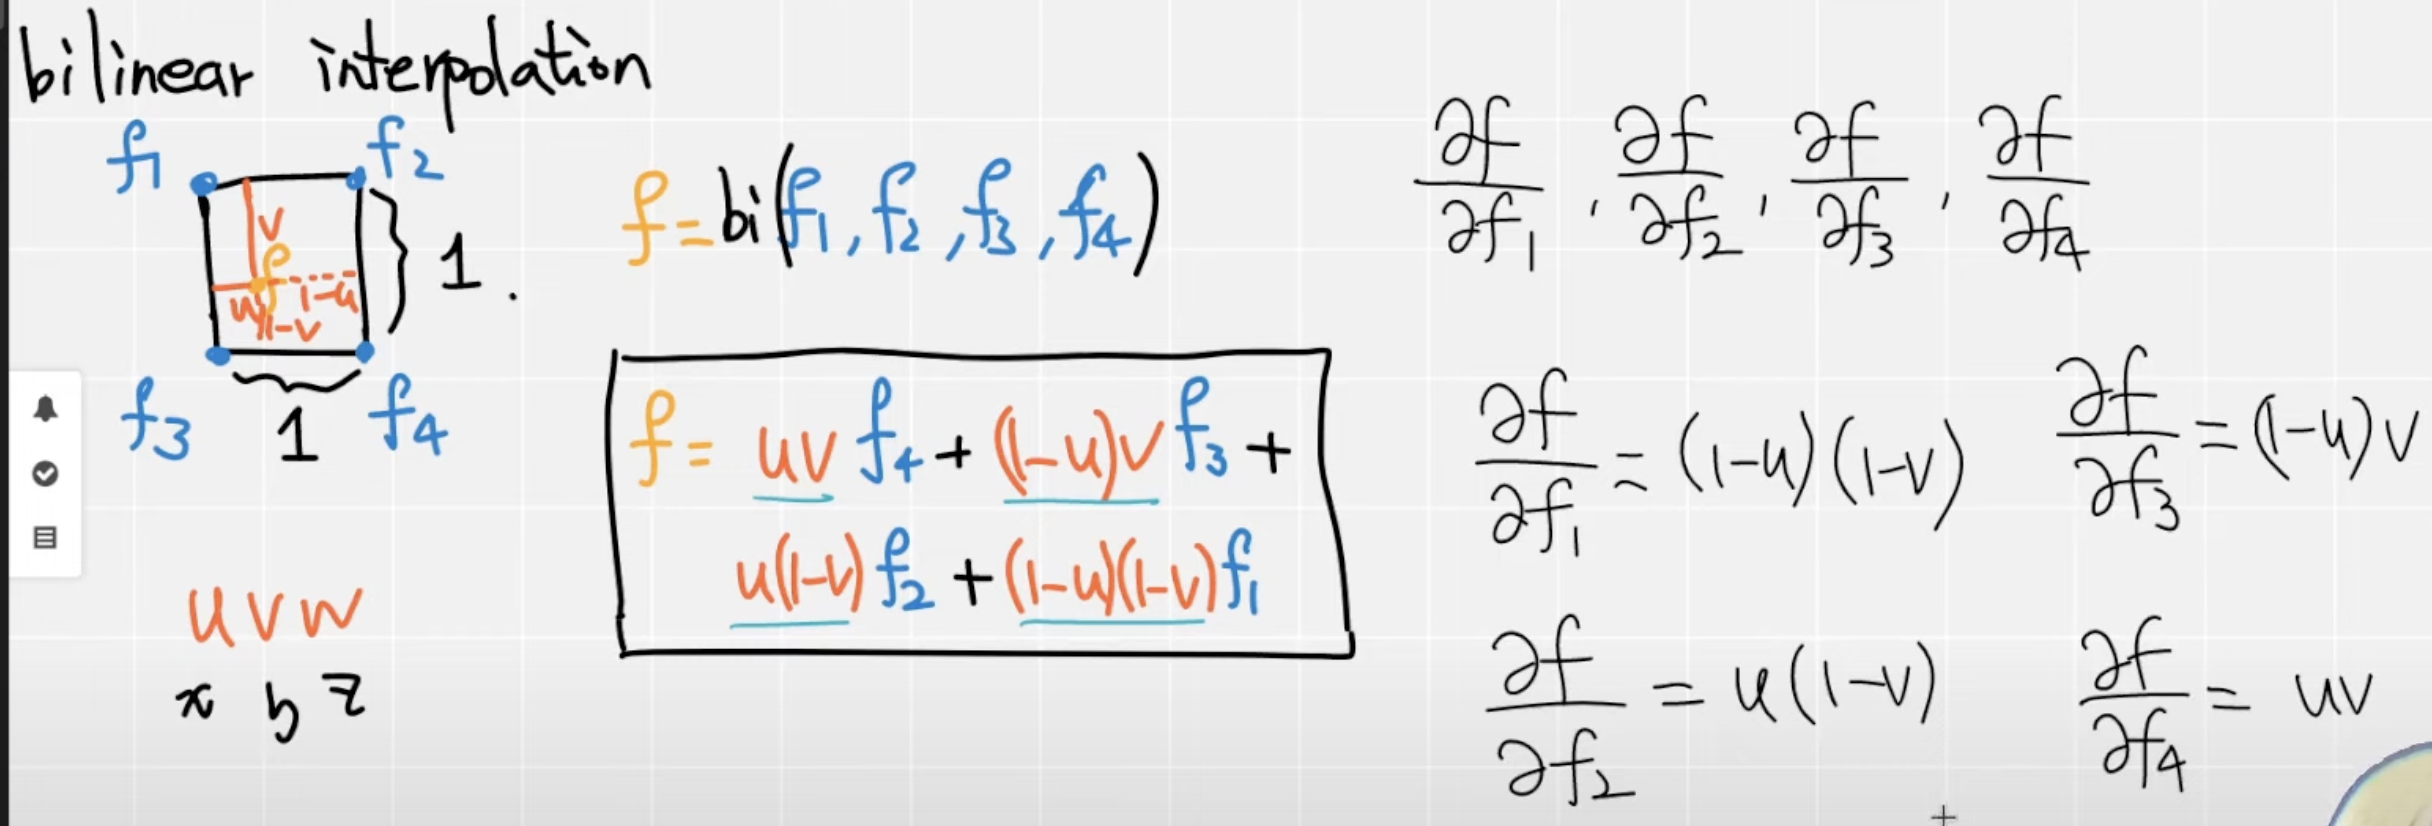 bilinear interpolation
f1 f2
v
f
u 1-u
1-v
1.
f3 1 f4
u v w
x y z
f = bi(f1, f2, f3, f4)
f = uv f4 + (1-u)v f3 +
u(1-v) f2 + (1-u)(1-v) f1
∂f/∂f1, ∂f/∂f2, ∂f/∂f3, ∂f/∂f4
∂f/∂f1 = (1-u)(1-v) ∂f/∂f3 = (1-u)v
∂f/∂f2 = u(1-v) ∂f/∂f4 = uv